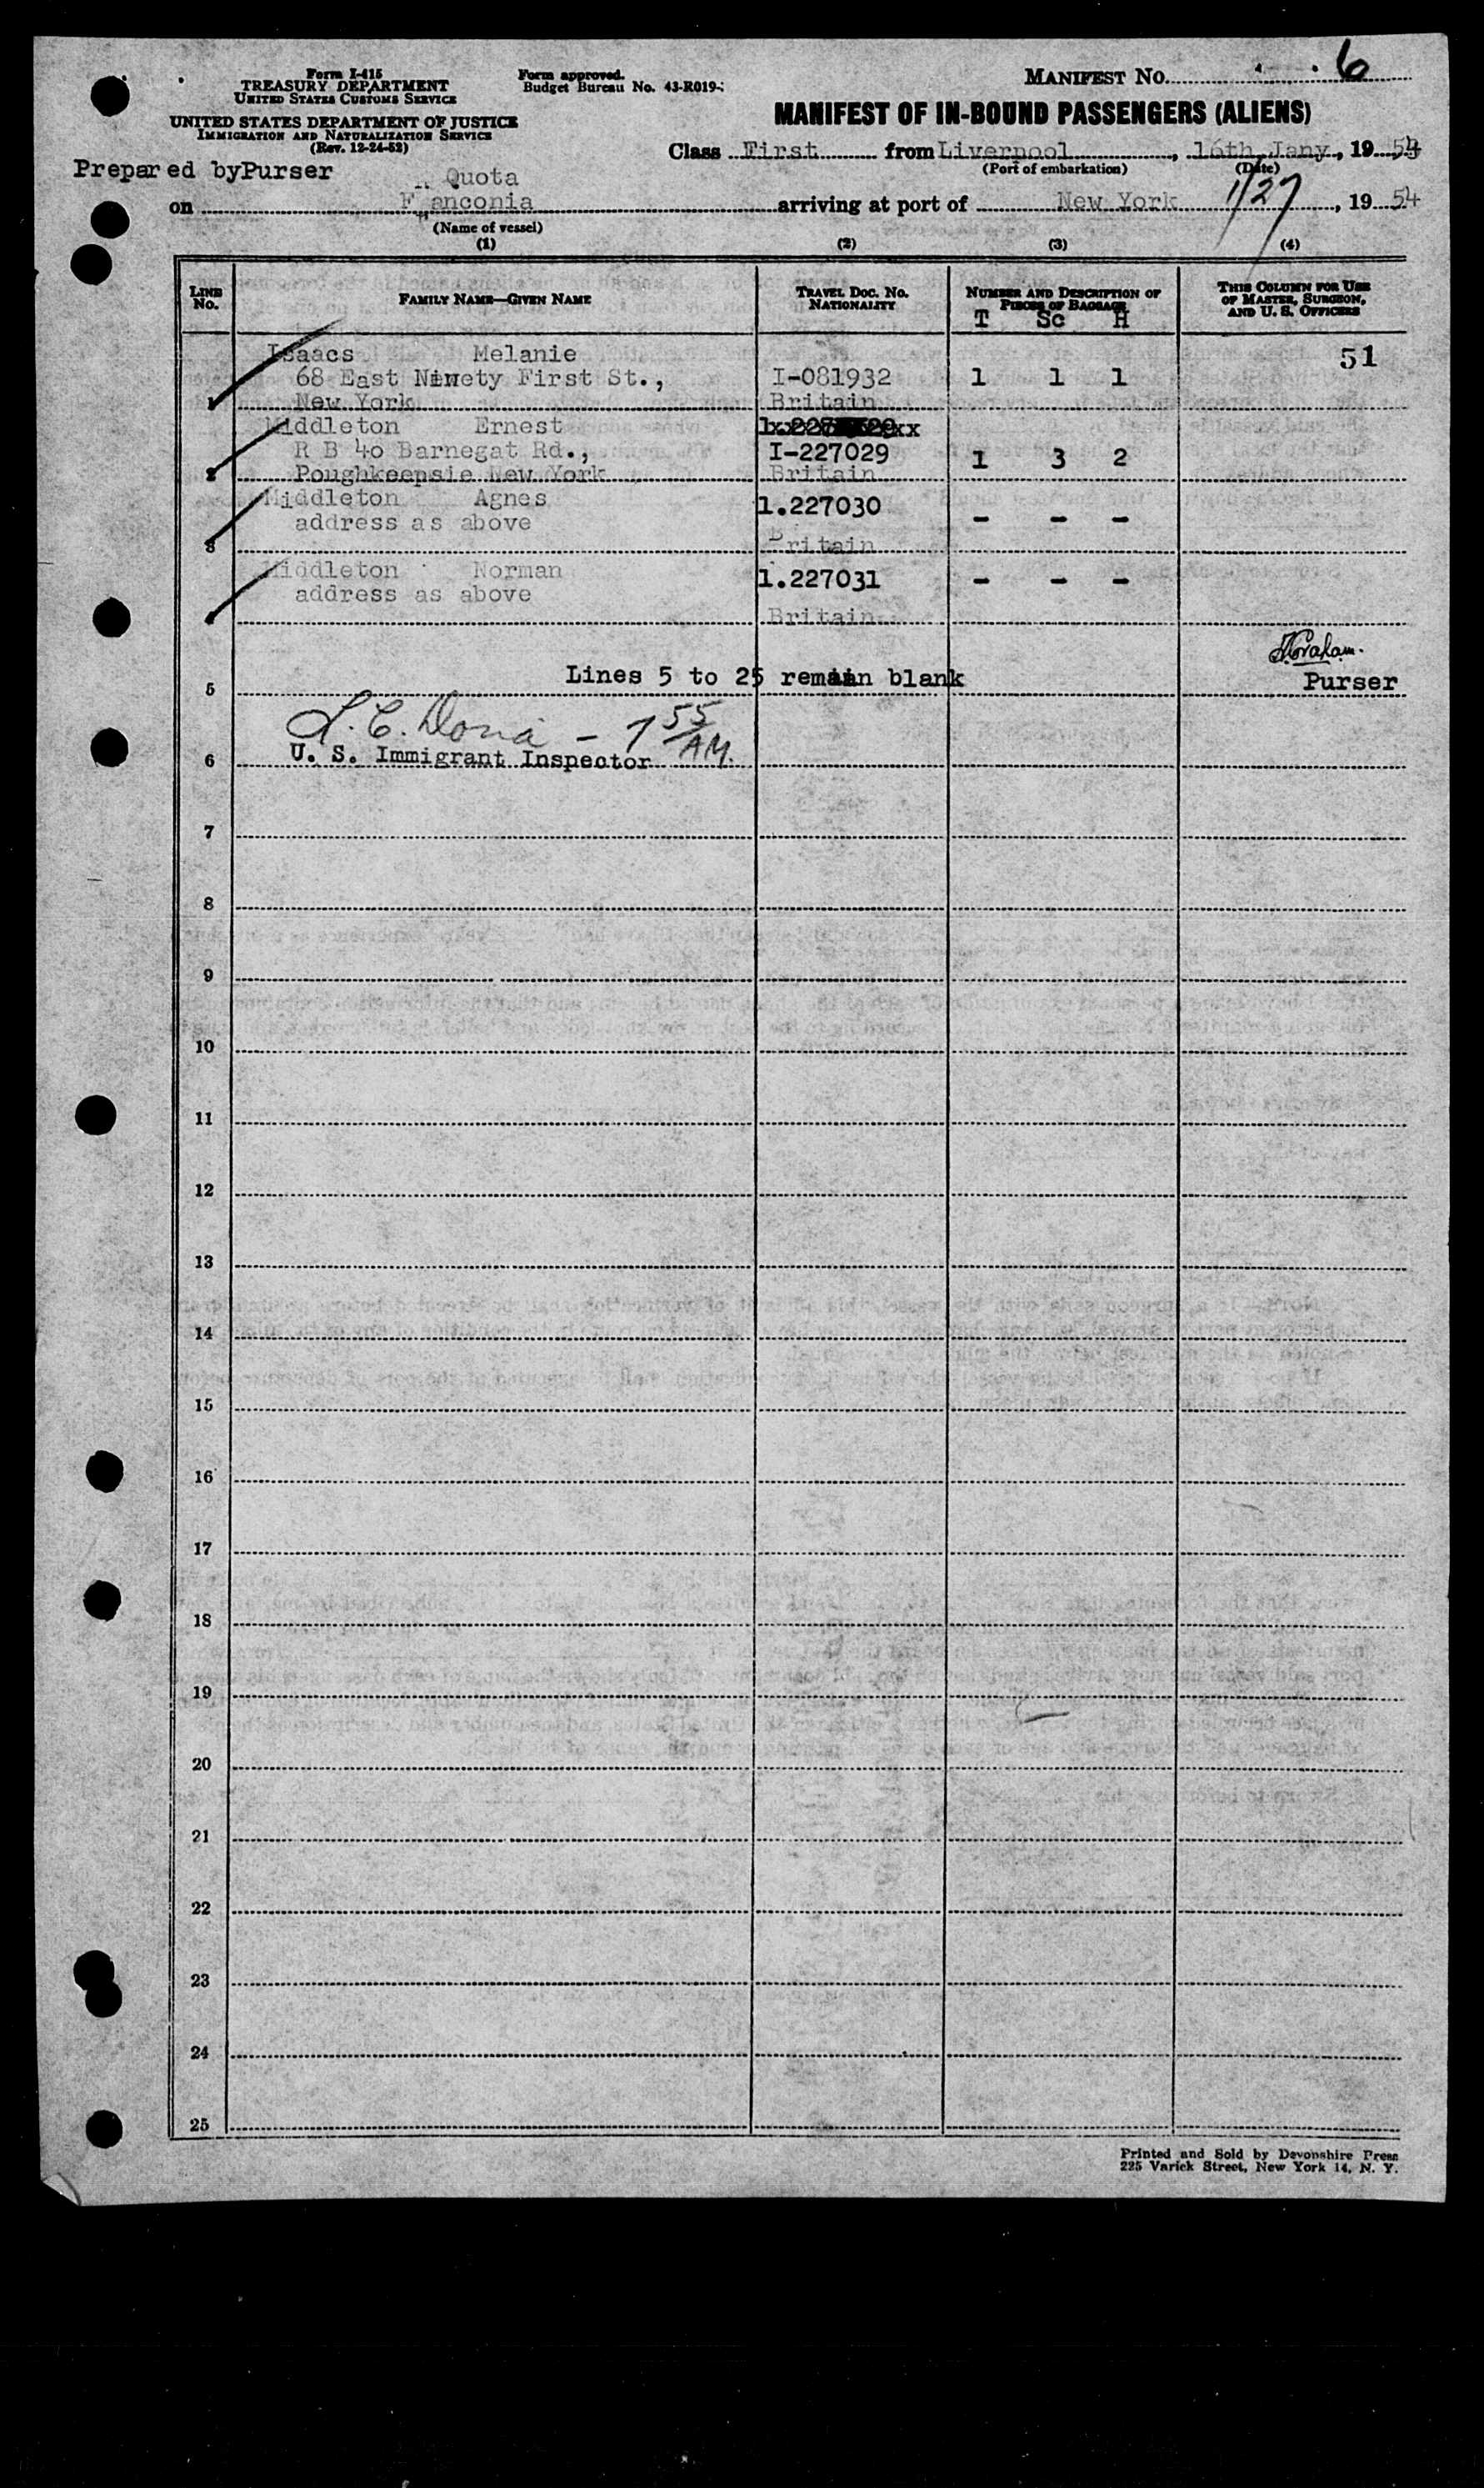 Form I-415
TREASURY DEPARTMENT
UNITED STATES CUSTOMS SERVICE
UNITED STATES DEPARTMENT OF JUSTICE
IMMIGRATION AND NATURALIZATION SERVICE
(Rev. 12-24-52)
Form approved.
Budget Bureau No. 43-R019-
MANIFEST NO. 6
MANIFEST OF IN-BOUND PASSENGERS (ALIENS)
Class First from Liverpool, 16th Jany, 1954
(Port of embarkation) (Date)
Prepared byPurser
Quota
on Franconia arriving at port of New York 1/27, 1954
(Name of vessel)
(1) (2) (3) (4)
LINE No. FAMILY NAME—GIVEN NAME TRAVEL DOC. NO. NATIONALITY NUMBER AND DESCRIPTION OF PIECES OF BAGGAGE THIS COLUMN FOR USE OF MASTER, SURGEON, AND U. S. OFFICERS
T Sc H
Isaacs Melanie 51
68 East Ninety First St., I-081932 1 1 1
1 New York Britain
Middleton Ernest
R B 40 Barnegat Rd., I-227029 1 3 2
2 Poughkeepsie New York Britain
Middleton Agnes 1.227030
address as above - - -
3 Britain
Middleton Norman 1.227031 - - -
address as above
4 Britain
Graham.
5 Lines 5 to 25 remain blank Purser
- 7 55 AM.
6 U. S. Immigrant Inspector
7
8
9
10
11
12
13
14
15
16
17
18
19
20
21
22
23
24
25
Printed and Sold by Devonshire Press
225 Varick Street, New York 14, N. Y.